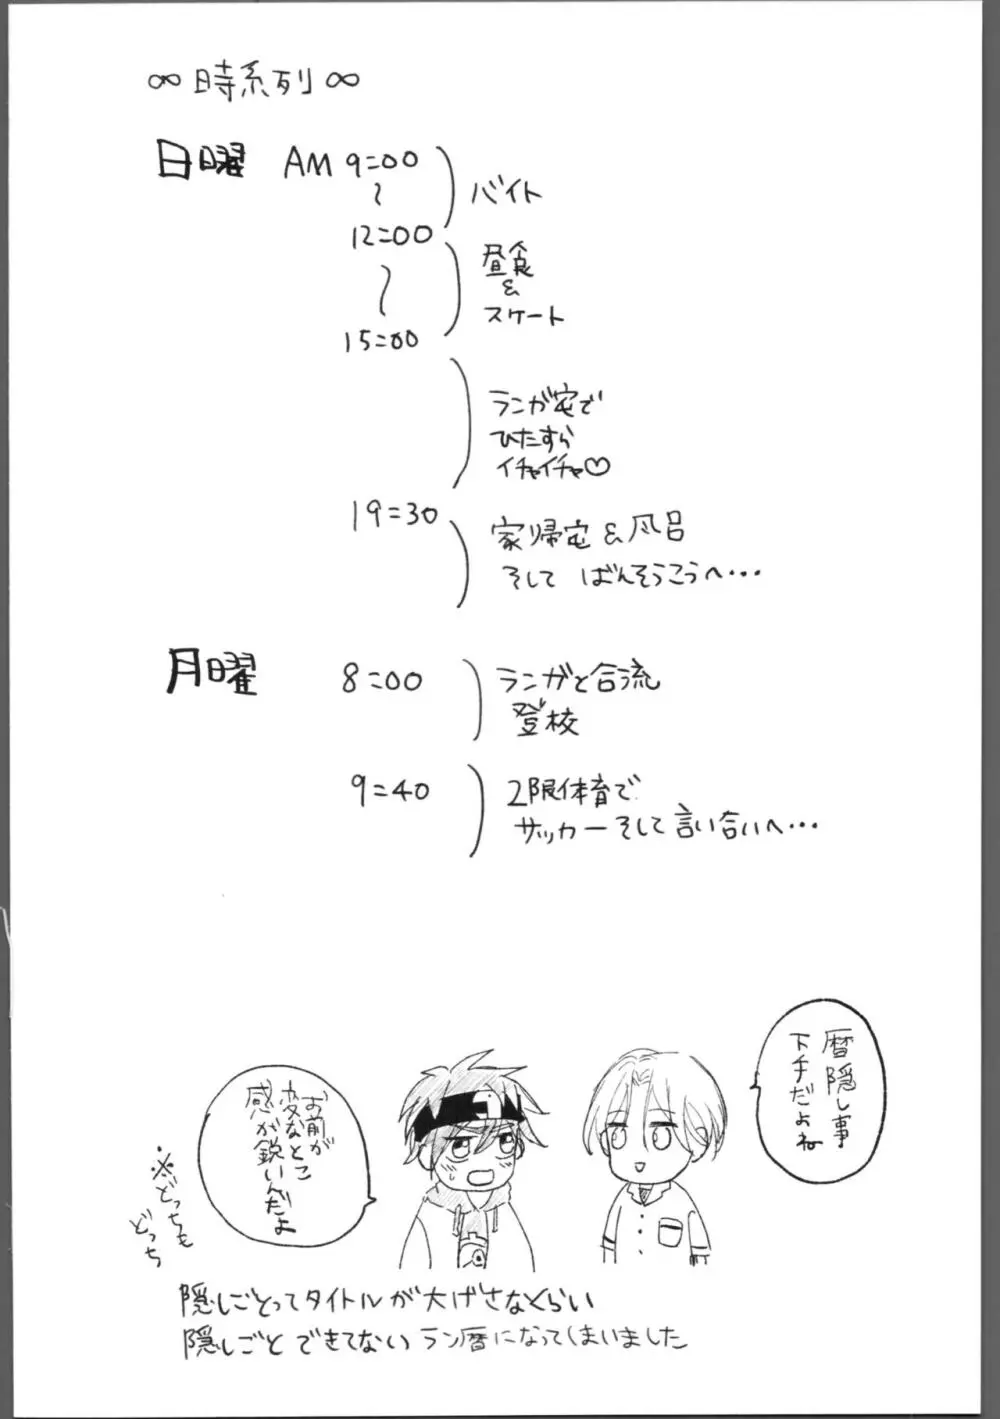 ∞時系列∞
日曜 AM 9:00
〜
バイト
12:00
〜
昼食
&
スケート
15:00
ランガ宅で
ひたすら
イチャイチャ♡
19:30
家帰宅&風呂
そして ばんそうこうへ・・・
月曜 8:00
ランガと合流
登校
9:40
2限体育で
サッカーそして言い合いへ・・・
暦隠し事
下手だよね
お前が
変なとこ
感が鋭いんだよ
※どっちも
どっち
隠しごとってタイトルが大げさなくらい
隠しごとできてないラン暦になってしまいました